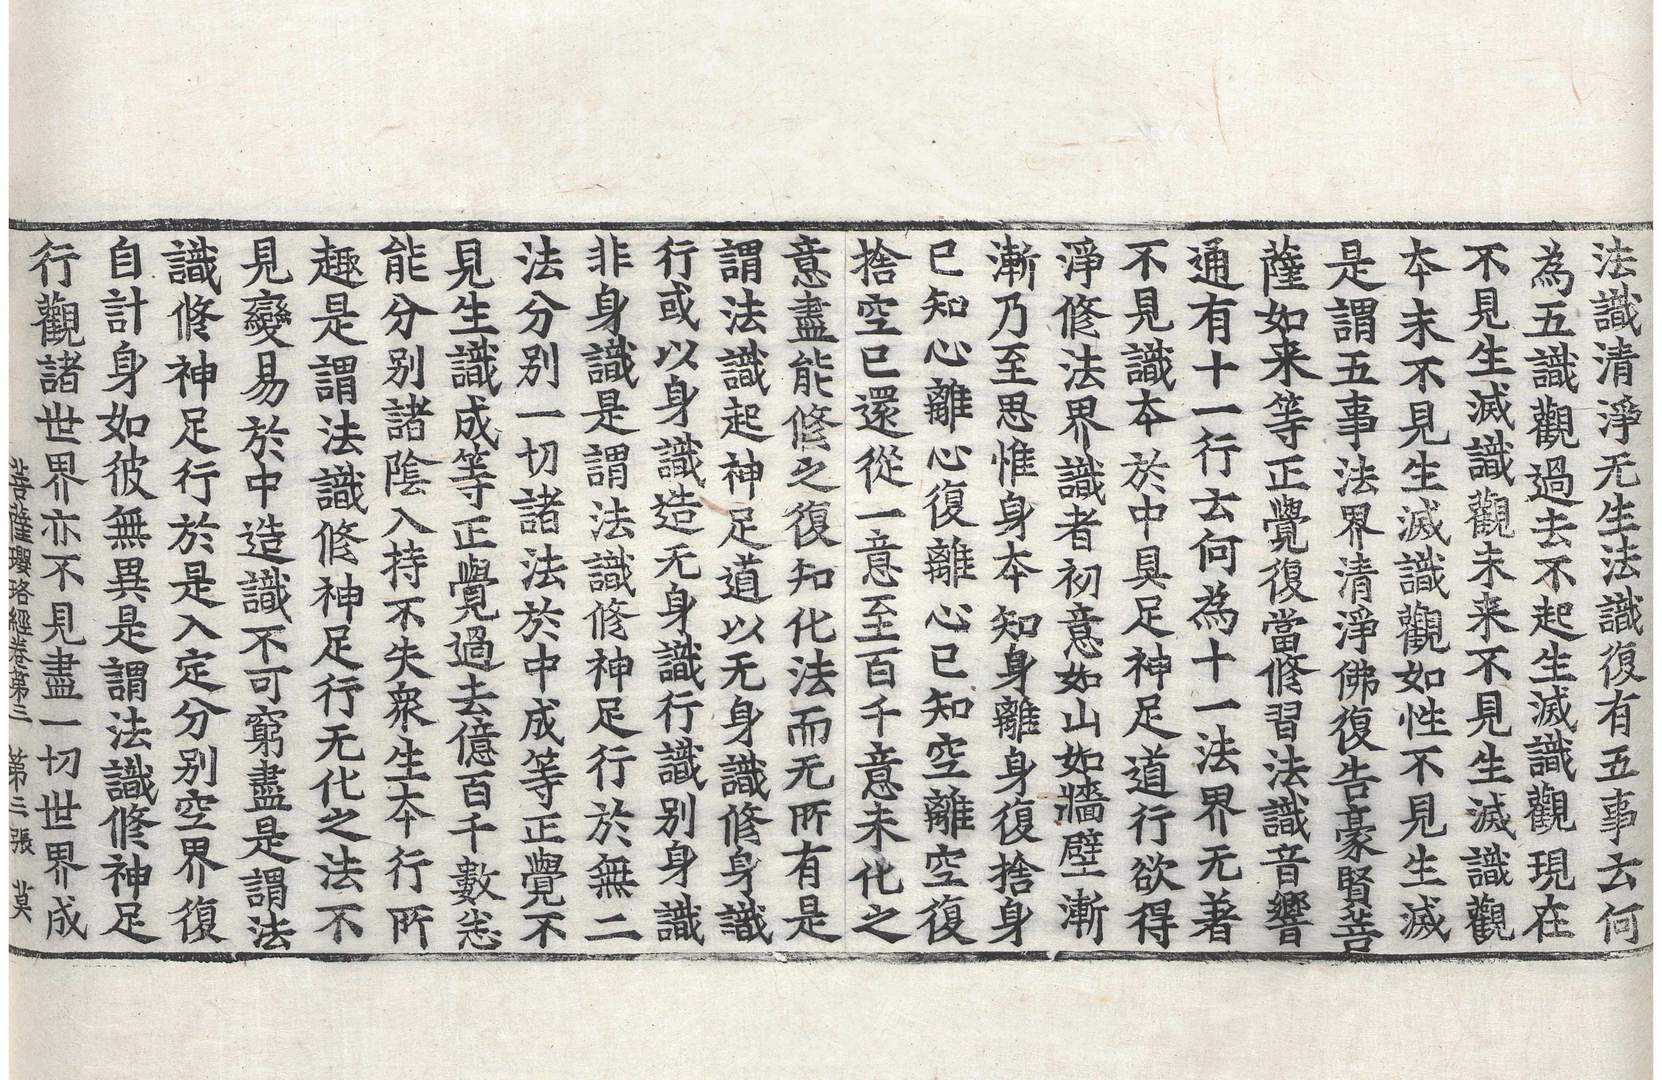 法識清淨无生法識復有五事云何
為五識觀過去不起生滅識觀現在
不見生滅識觀未来不見生滅識觀
本末不見生滅識觀如性不見生滅
是謂五事法界清淨佛復告豪賢菩
薩如来等正覺復當修習法識音響
通有十一行云何為十一法界无著
不見識本於中具足神足道行欲得
淨修法界識者初意如山如牆壁漸
漸乃至思惟身本知身離身復捨身
已知心離心復離心已知空離空復
捨空已還從一意至百千意未化之
意盡能修之復知化法而无所有是
謂法識起神足道以无身識修身識
行或以身識造无身識行識别身識
非身識是謂法識修神足行於無二
法分别一切諸法於中成等正覺不
見生識成等正覺過去億百千數悉
能分别諸陰入持不失衆生本行所
趣是謂法識修神足行无化之法不
見變易於中造識不可窮盡是謂法
識修神足行於是入定分别空界復
自計身如彼無異是謂法識修神足
行觀諸世界亦不見盡一切世界成
菩薩瓔珞經卷第三 第二張 莫